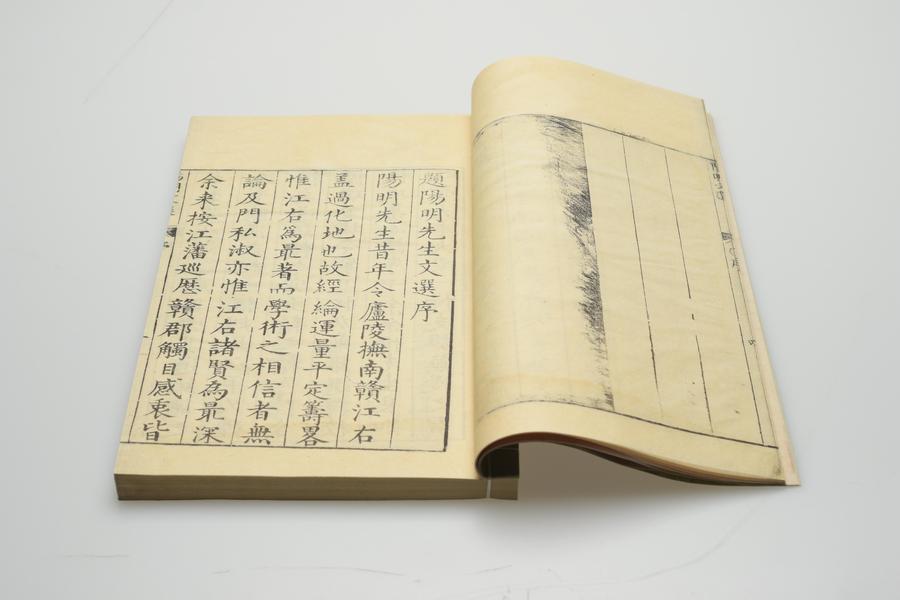 題陽明先生文選序
陽明先生昔年令廬陵撫南贛江右
盖過化地也故經綸運量平定籌畧
惟江右為最著而學術之相信者無
論及門私淑亦惟江右諸賢為最深
余来按江藩巡歴贛郡觸目感衷皆